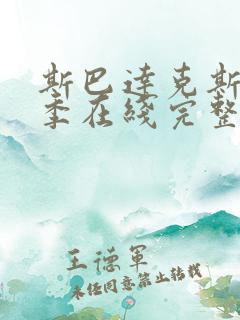 斯巴达克斯
季在线完整
王德军
未经同意禁止转载